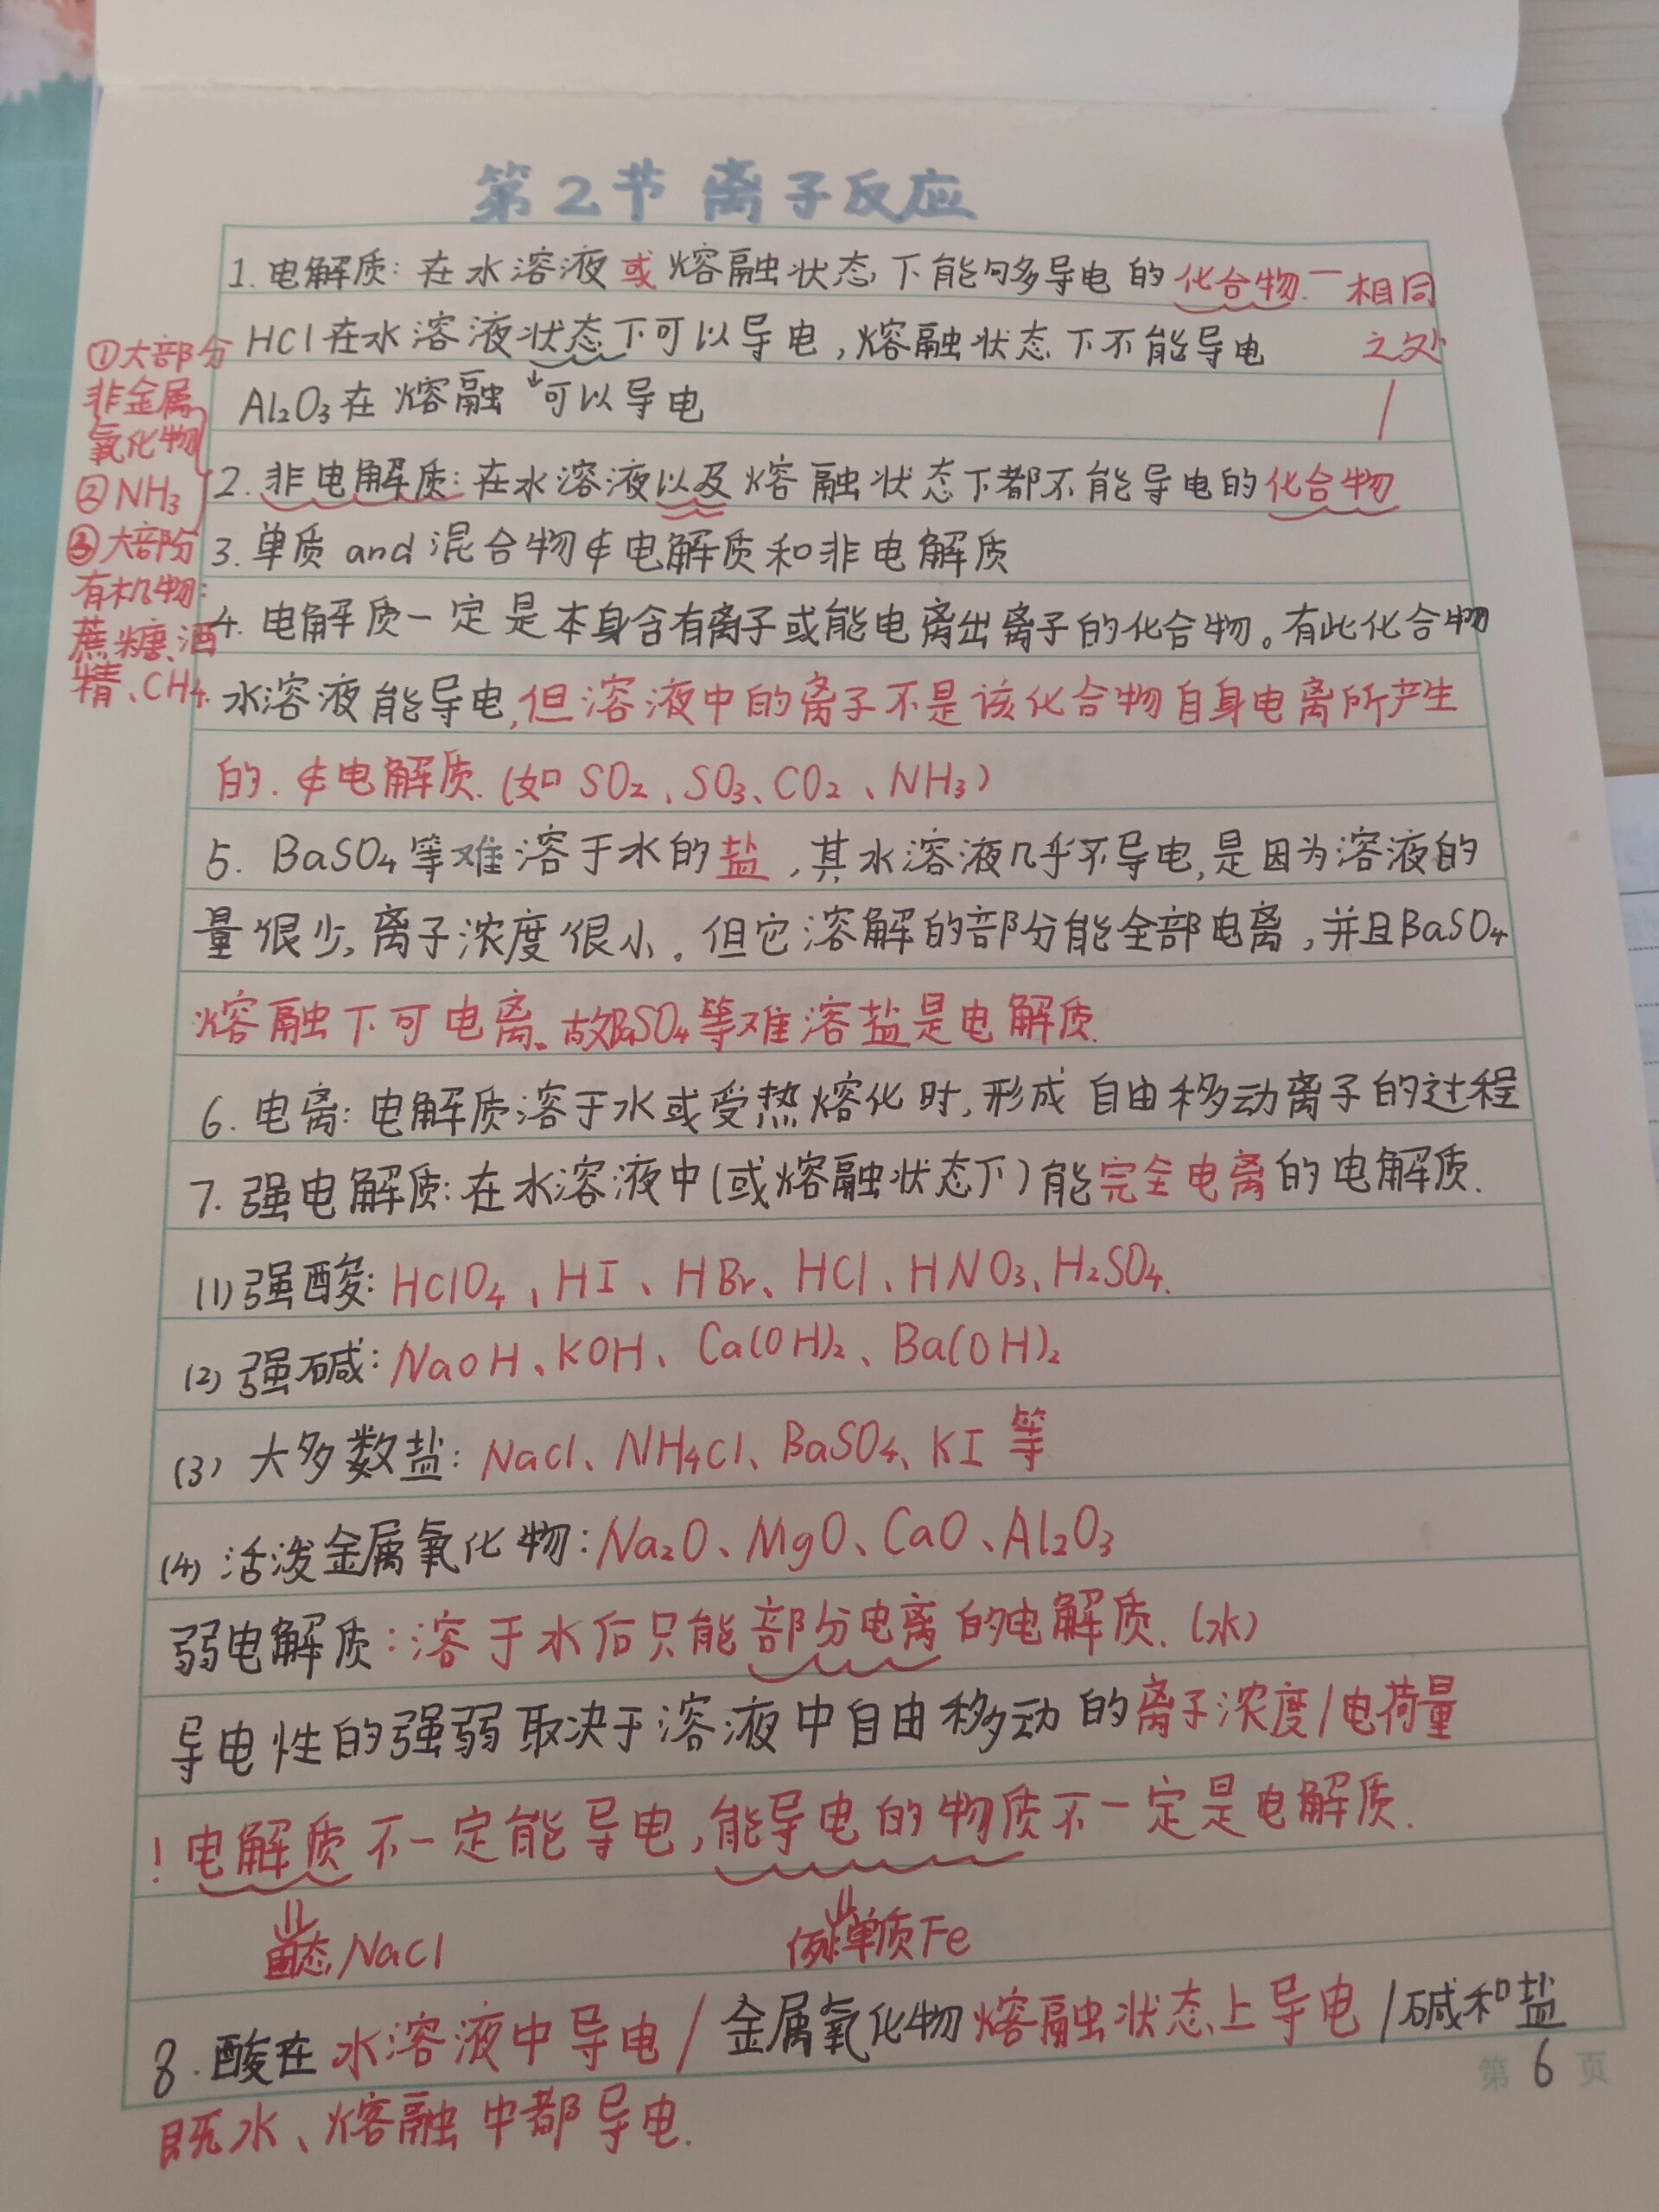 第2节 离子反应
1.电解质:在水溶液或熔融状态下能够多导电的化合物.一相同
之处
HCl在水溶液状态下可以导电,熔融状态下不能导电
Al₂O₃在熔融↓可以导电
①大部分
非金属
氧化物
②NH₃
③大部份
有机物:
蔗糖、酒
精、CH₄.
2.非电解质:在水溶液以及熔融状态下都不能导电的化合物
3.单质and混合物∉电解质和非电解质
4.电解质一定是本身含有离子或能电离出离子的化合物。有此化合物
水溶液能导电,但溶液中的离子不是该化合物自身电离所产生
的.∉电解质.(如SO₂、SO₃、CO₂、NH₃)
5.BaSO₄等难溶于水的盐,其水溶液几乎不导电,是因为溶液的
量很少,离子浓度很小。但它溶解的部分能全部电离,并且BaSO₄
熔融下可电离。故BaSO₄等难溶盐是电解质.
6.电离:电解质溶于水或受热熔化时,形成自由移动离子的过程
7.强电解质:在水溶液中(或熔融状态下)能完全电离的电解质.
(1)强酸:HClO₄、HI、HBr、HCl、HNO₃、H₂SO₄.
(2)强碱:NaOH、KOH、Ca(OH)₂、Ba(OH)₂
(3)大多数盐:NaCl、NH₄Cl、BaSO₄、KI等
(4)活泼金属氧化物:Na₂O、MgO、CaO、Al₂O₃
弱电解质:溶于水后只能部分电离的电解质.(水)
导电性的强弱取决于溶液中自由移动的离子浓度/电荷量
!电解质不一定能导电,能导电的物质不一定是电解质.
⇓ ⇓
固态NaCl 例:单质Fe
8.酸在水溶液中导电/金属氧化物熔融状态上导电/碱和盐
既水、熔融中都导电.
第6页